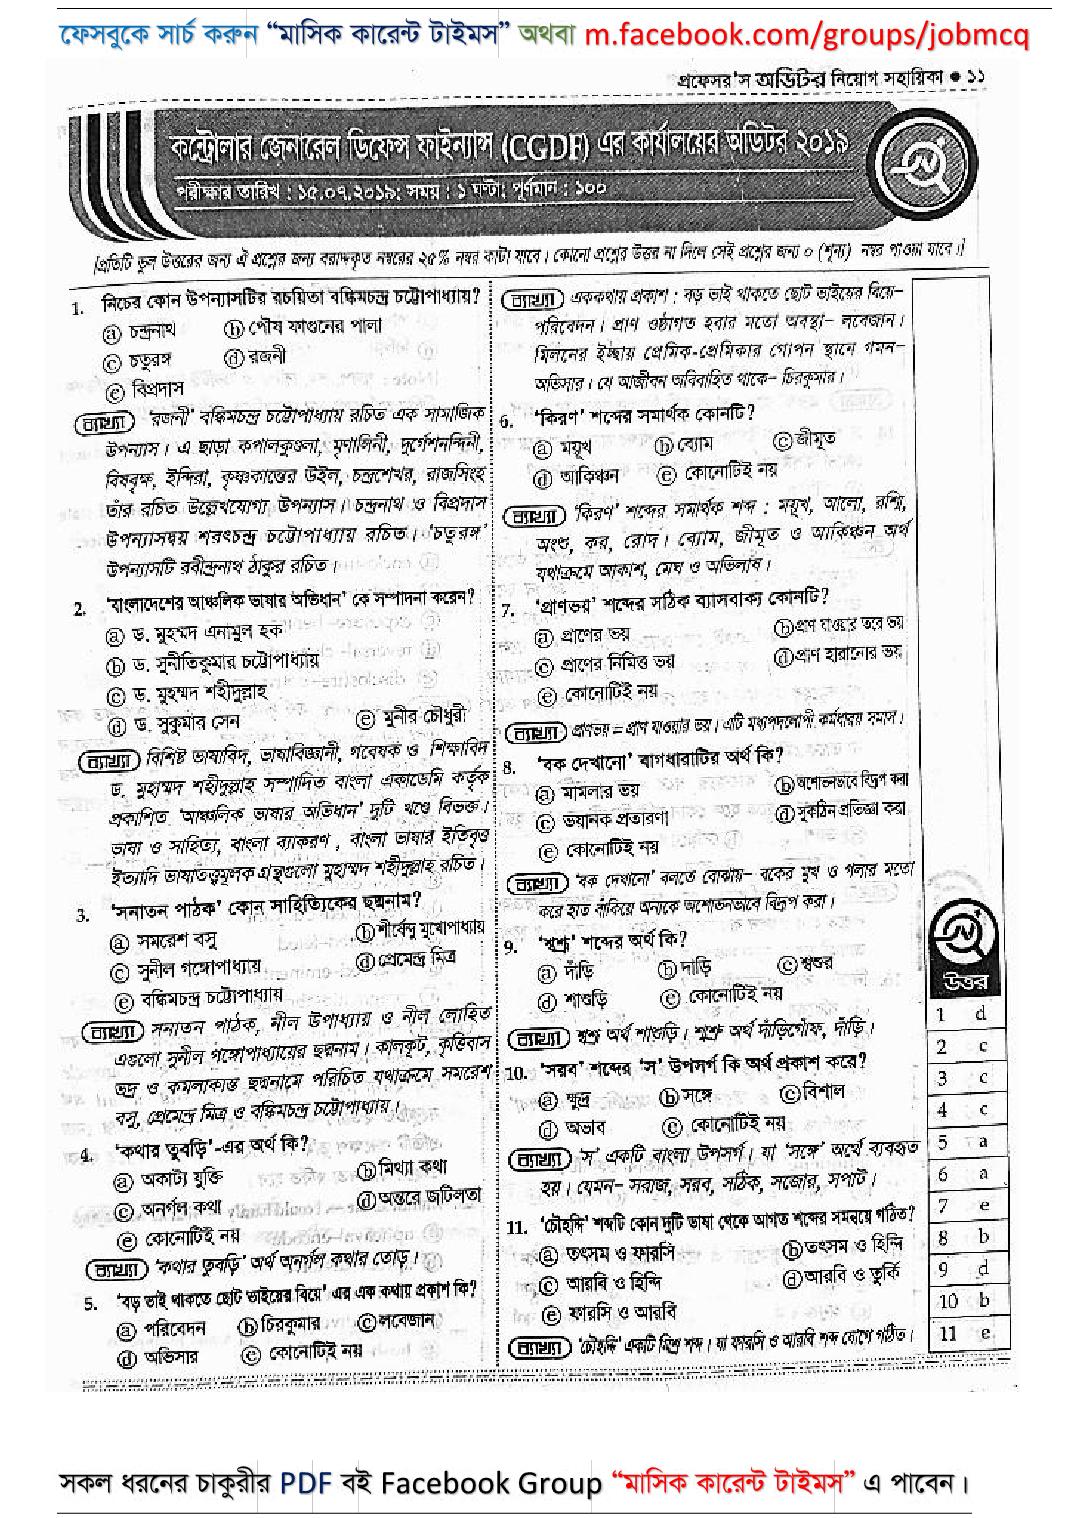 ফেসবুকে সার্চ করুন “মাসিক কারেন্ট টাইমস” অথবা m.facebook.com/groups/jobmcq
প্রফেসর'স অডিটর নিয়োগ সহায়িকা ● ১১
কন্ট্রোলার জেনারেল ডিফেন্স ফাইন্যান্স (CGDF) এর কার্যালয়ের অডিটর ২০১৯
পরীক্ষার তারিখ : ১৫.০৭.২০১৯; সময় : ১ ঘণ্টা; পূর্ণমান : ১০০
[প্রতিটি ভুল উত্তরের জন্য ঐ প্রশ্নের জন্য বরাদ্দকৃত নম্বরের ২৫% নম্বর কাটা যাবে। কোনো প্রশ্নের উত্তর না দিলে সেই প্রশ্নের জন্য ০ (শূন্য) নম্বর পাওয়া যাবে।]
1. নিচের কোন উপন্যাসটির রচয়িতা বঙ্কিমচন্দ্র চট্টোপাধ্যায়?
ⓐ চন্দ্রনাথ ⓑ পৌষ ফাগুনের পালা
ⓒ চতুরঙ্গ ⓓ রজনী
ⓔ বিপ্রদাস
ব্যাখ্যা 'রজনী' বঙ্কিমচন্দ্র চট্টোপাধ্যায় রচিত এক সামাজিক
উপন্যাস। এ ছাড়া কপালকুণ্ডলা, মৃণালিনী, দুর্গেশনন্দিনী,
বিষবৃক্ষ, ইন্দিরা, কৃষ্ণকান্তের উইল, চন্দ্রশেখর, রাজসিংহ
তাঁর রচিত উল্লেখযোগ্য উপন্যাস। চন্দ্রনাথ ও বিপ্রদাস
উপন্যাসদ্বয় শরৎচন্দ্র চট্টোপাধ্যায় রচিত। 'চতুরঙ্গ'
উপন্যাসটি রবীন্দ্রনাথ ঠাকুর রচিত।
2. 'বাংলাদেশের আঞ্চলিক ভাষার অভিধান' কে সম্পাদনা করেন?
ⓐ ড. মুহম্মদ এনামুল হক
ⓑ ড. সুনীতিকুমার চট্টোপাধ্যায়
ⓒ ড. মুহম্মদ শহীদুল্লাহ
ⓓ ড. সুকুমার সেন ⓔ মুনীর চৌধুরী
ব্যাখ্যা বিশিষ্ট ভাষাবিদ, ভাষাবিজ্ঞানী, গবেষক ও শিক্ষাবিদ
ড. মুহাম্মদ শহীদুল্লাহ সম্পাদিত বাংলা একাডেমি কর্তৃক
প্রকাশিত 'আঞ্চলিক ভাষার অভিধান' দুটি খণ্ডে বিভক্ত।
ভাষা ও সাহিত্য, বাংলা ব্যাকরণ, বাংলা ভাষার ইতিবৃত্ত
ইত্যাদি ভাষাতত্ত্বমূলক গ্রন্থগুলো মুহাম্মদ শহীদুল্লাহ রচিত।
3. 'সনাতন পাঠক' কোন সাহিত্যিকের ছদ্মনাম?
ⓐ সমরেশ বসু ⓑ শীর্ষেন্দু মুখোপাধ্যায়
ⓒ সুনীল গঙ্গোপাধ্যায় ⓓ প্রেমেন্দ্র মিত্র
ⓔ বঙ্কিমচন্দ্র চট্টোপাধ্যায়
ব্যাখ্যা সনাতন পাঠক, নীল উপাধ্যায় ও নীল লোহিত
এগুলো সুনীল গঙ্গোপাধ্যায়ের ছদ্মনাম। কালকূট, কৃত্তিবাস
ভদ্র ও কমলাকান্ত ছদ্মনামে পরিচিত যথাক্রমে সমরেশ
বসু, প্রেমেন্দ্র মিত্র ও বঙ্কিমচন্দ্র চট্টোপাধ্যায়।
4. 'কথার তুবড়ি'-এর অর্থ কি?
ⓐ অকাট্য যুক্তি ⓑ মিথ্যা কথা
ⓒ অনর্গল কথা ⓓ অন্তরে জটিলতা
ⓔ কোনোটিই নয়
ব্যাখ্যা 'কথার তুবড়ি' অর্থ অনর্গল কথার তোড়।
5. 'বড় ভাই থাকতে ছোট ভাইয়ের বিয়ে' এর এক কথায় প্রকাশ কি?
ⓐ পরিবেদন ⓑ চিরকুমার ⓒ লবেজান
ⓓ অভিসার ⓔ কোনোটিই নয়
ব্যাখ্যা এককথায় প্রকাশ : বড় ভাই থাকতে ছোট ভাইয়ের বিয়ে–
পরিবেদন। প্রাণ ওষ্ঠাগত হবার মতো অবস্থা– লবেজান।
মিলনের ইচ্ছায় প্রেমিক-প্রেমিকার গোপন স্থানে গমন–
অভিসার। যে আজীবন অবিবাহিত থাকে– চিরকুমার।
6. 'কিরণ' শব্দের সমার্থক কোনটি?
ⓐ ময়ূখ ⓑ ব্যোম ⓒ জীমূত
ⓓ আকিঞ্চন ⓔ কোনোটিই নয়
ব্যাখ্যা 'কিরণ' শব্দের সমার্থক শব্দ : ময়ূখ, আলো, রশ্মি,
অংশু, কর, রোদ। ব্যোম, জীমূত ও আকিঞ্চন অর্থ
যথাক্রমে আকাশ, মেঘ ও অভিলাষ।
7. 'প্রাণভয়' শব্দের সঠিক ব্যাসবাক্য কোনটি?
ⓐ প্রাণের ভয় ⓑ প্রাণ যাওয়ার তরে ভয়
ⓒ প্রাণের নিমিত্ত ভয় ⓓ প্রাণ হারানোর ভয়
ⓔ কোনোটিই নয়
ব্যাখ্যা প্রাণভয় = প্রাণ যাওয়ার ভয়। এটি মধ্যপদলোপী কর্মধারয় সমাস।
8. 'বক দেখানো' বাগধারাটির অর্থ কি?
ⓐ মামলার ভয় ⓑ অশোভনভাবে বিদ্রূপ করা
ⓒ ভয়ানক প্রতারণা ⓓ সুকঠিন প্রতিজ্ঞা করা
ⓔ কোনোটিই নয়
ব্যাখ্যা 'বক দেখানো' বলতে বোঝায়– বকের মুখ ও গলার মতো
করে হাত বাঁকিয়ে অন্যকে অশোভনভাবে বিদ্রূপ করা।
9. 'শ্বশ্রূ' শব্দের অর্থ কি?
ⓐ দাঁড়ি ⓑ দাড়ি ⓒ শ্বশুর
ⓓ শাশুড়ি ⓔ কোনোটিই নয়
ব্যাখ্যা শ্বশ্রূ অর্থ শাশুড়ি। শ্মশ্রু অর্থ দাঁড়িগোঁফ, দাঁড়ি।
10. 'সরব' শব্দের 'স' উপসর্গ কি অর্থ প্রকাশ করে?
ⓐ ক্ষুদ্র ⓑ সঙ্গে ⓒ বিশাল
ⓓ অভাব ⓔ কোনোটিই নয়
ব্যাখ্যা 'স' একটি বাংলা উপসর্গ। যা 'সঙ্গে' অর্থে ব্যবহৃত
হয়। যেমন– সরাজ, সরব, সঠিক, সজোর, সপাট।
11. 'চৌহদ্দি' শব্দটি কোন দুটি ভাষা থেকে আগত শব্দের সমন্বয়ে গঠিত?
ⓐ তৎসম ও ফারসি ⓑ তৎসম ও হিন্দি
ⓒ আরবি ও হিন্দি ⓓ আরবি ও তুর্কি
ⓔ ফারসি ও আরবি
ব্যাখ্যা 'চৌহদ্দি' একটি মিশ্র শব্দ। যা ফারসি ও আরবি শব্দ যোগে গঠিত।
উত্তর
1 d
2 c
3 c
4 c
5 a
6 a
7 e
8 b
9 d
10 b
11 e
সকল ধরনের চাকুরীর PDF বই Facebook Group “মাসিক কারেন্ট টাইমস” এ পাবেন।